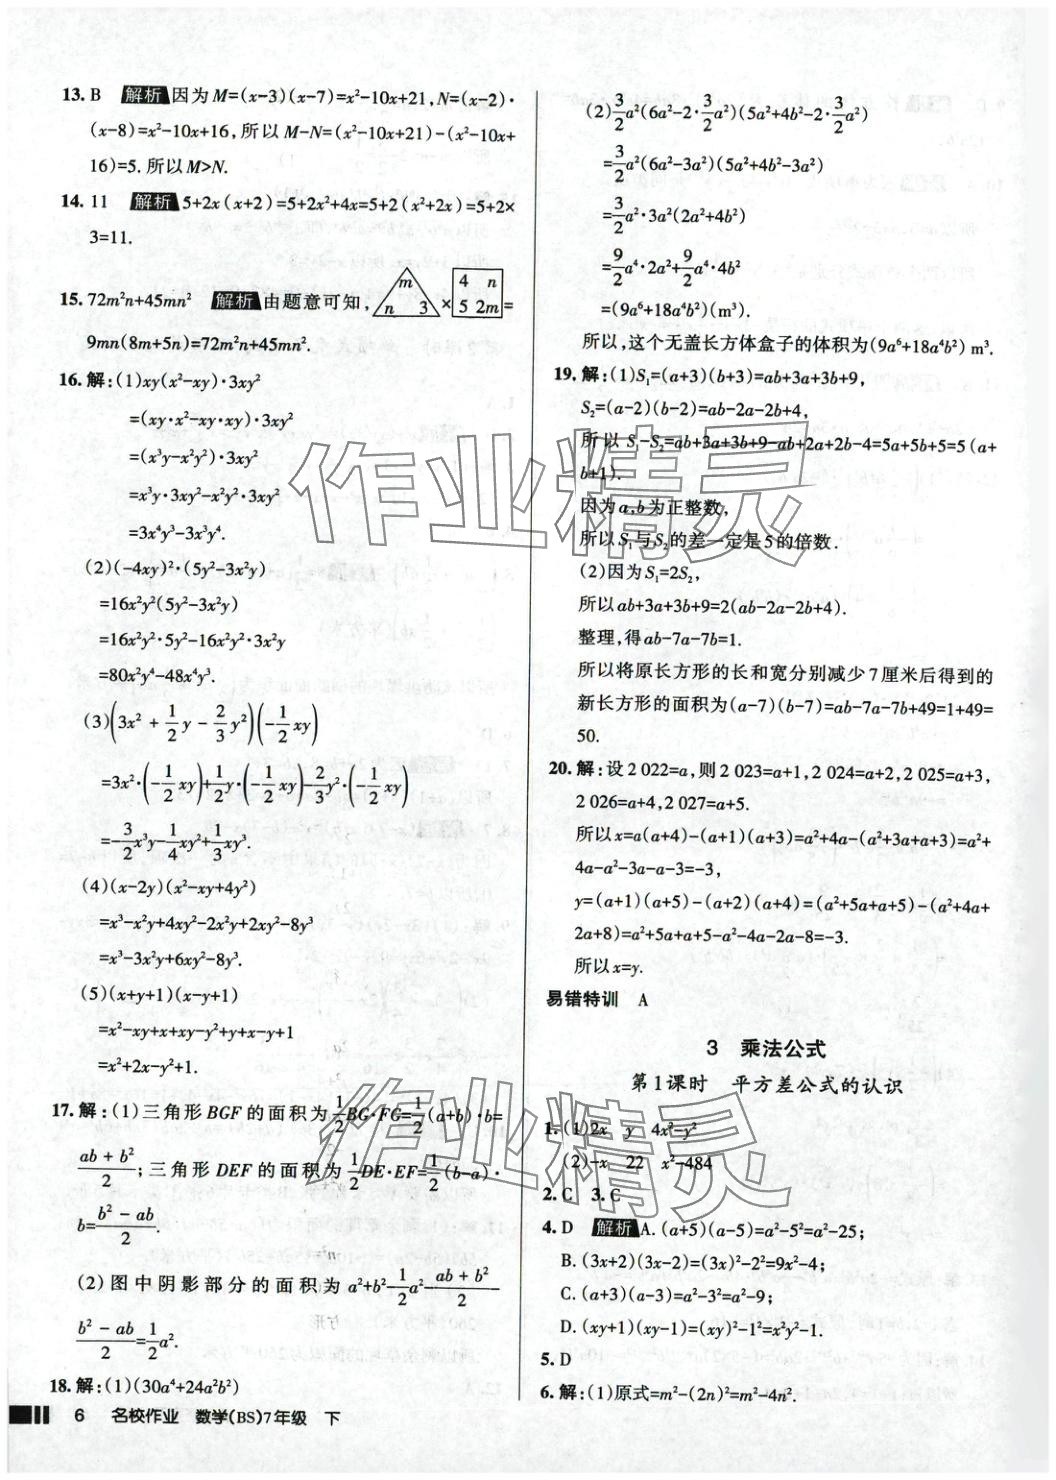 13. B 解析 因为M=(x-3)(x-7)=x²-10x+21,N=(x-2)·
(x-8)=x²-10x+16,所以M-N=(x²-10x+21)-(x²-10x+
16)=5.所以M>N.
14. 11 解析 5+2x(x+2)=5+2x²+4x=5+2(x²+2x)=5+2×
3=11.
15. 72m²n+45mn² 解析 由题意可知, m n 3 × 4 n 5 2m =
9mn(8m+5n)=72m²n+45mn².
16. 解:(1)xy(x²-xy)·3xy²
=(xy·x²-xy·xy)·3xy²
=(x³y-x²y²)·3xy²
=x³y·3xy²-x²y²·3xy²
=3x⁴y³-3x³y⁴.
(2)(-4xy)²·(5y²-3x²y)
=16x²y²(5y²-3x²y)
=16x²y²·5y²-16x²y²·3x²y
=80x²y⁴-48x⁴y³.
(3)(3x²+1/2y-2/3y²)(-1/2xy)
=3x²·(-1/2xy)+1/2y·(-1/2xy)-2/3y²·(-1/2xy)
=-3/2x³y-1/4xy²+1/3xy³.
(4)(x-2y)(x²-xy+4y²)
=x³-x²y+4xy²-2x²y+2xy²-8y³
=x³-3x²y+6xy²-8y³.
(5)(x+y+1)(x-y+1)
=x²-xy+x+xy-y²+y+x-y+1
=x²+2x-y²+1.
17. 解:(1)三角形BGF的面积为1/2BG·FG=1/2(a+b)·b=
(ab+b²)/2;三角形DEF的面积为1/2DE·EF=1/2(b-a)·
b=(b²-ab)/2.
(2)图中阴影部分的面积为a²+b²-1/2a²-(ab+b²)/2-
(b²-ab)/2=1/2a².
18. 解:(1)(30a⁴+24a²b²)
(2)3/2a²(6a²-2·3/2a²)(5a²+4b²-2·3/2a²)
=3/2a²(6a²-3a²)(5a²+4b²-3a²)
=3/2a²·3a²(2a²+4b²)
=9/2a⁴·2a²+9/2a⁴·4b²
=(9a⁶+18a⁴b²)(m³).
所以,这个无盖长方体盒子的体积为(9a⁶+18a⁴b²) m³.
19. 解:(1)S₁=(a+3)(b+3)=ab+3a+3b+9,
S₂=(a-2)(b-2)=ab-2a-2b+4,
所以S₁-S₂=ab+3a+3b+9-ab+2a+2b-4=5a+5b+5=5(a+
b+1).
因为a,b为正整数,
所以S₁与S₂的差一定是5的倍数.
(2)因为S₁=2S₂,
所以ab+3a+3b+9=2(ab-2a-2b+4).
整理,得ab-7a-7b=1.
所以将原长方形的长和宽分别减少7厘米后得到的
新长方形的面积为(a-7)(b-7)=ab-7a-7b+49=1+49=
50.
20. 解:设2 022=a,则2 023=a+1,2 024=a+2,2 025=a+3,
2 026=a+4,2 027=a+5.
所以x=a(a+4)-(a+1)(a+3)=a²+4a-(a²+3a+a+3)=a²+
4a-a²-3a-a-3=-3,
y=(a+1)(a+5)-(a+2)(a+4)=(a²+5a+a+5)-(a²+4a+
2a+8)=a²+5a+a+5-a²-4a-2a-8=-3.
所以x=y.
易错特训 A
3 乘法公式
第1课时 平方差公式的认识
1. (1)2x y 4x²-y²
(2)-x 22 x²-484
2. C 3. C
4. D 解析 A. (a+5)(a-5)=a²-5²=a²-25;
B. (3x+2)(3x-2)=(3x)²-2²=9x²-4;
C. (a+3)(a-3)=a²-3²=a²-9;
D. (xy+1)(xy-1)=(xy)²-1²=x²y²-1.
5. D
6. 解:(1)原式=m²-(2n)²=m²-4n².
6 名校作业 数学(BS)7年级 下
作业精灵
作业精灵